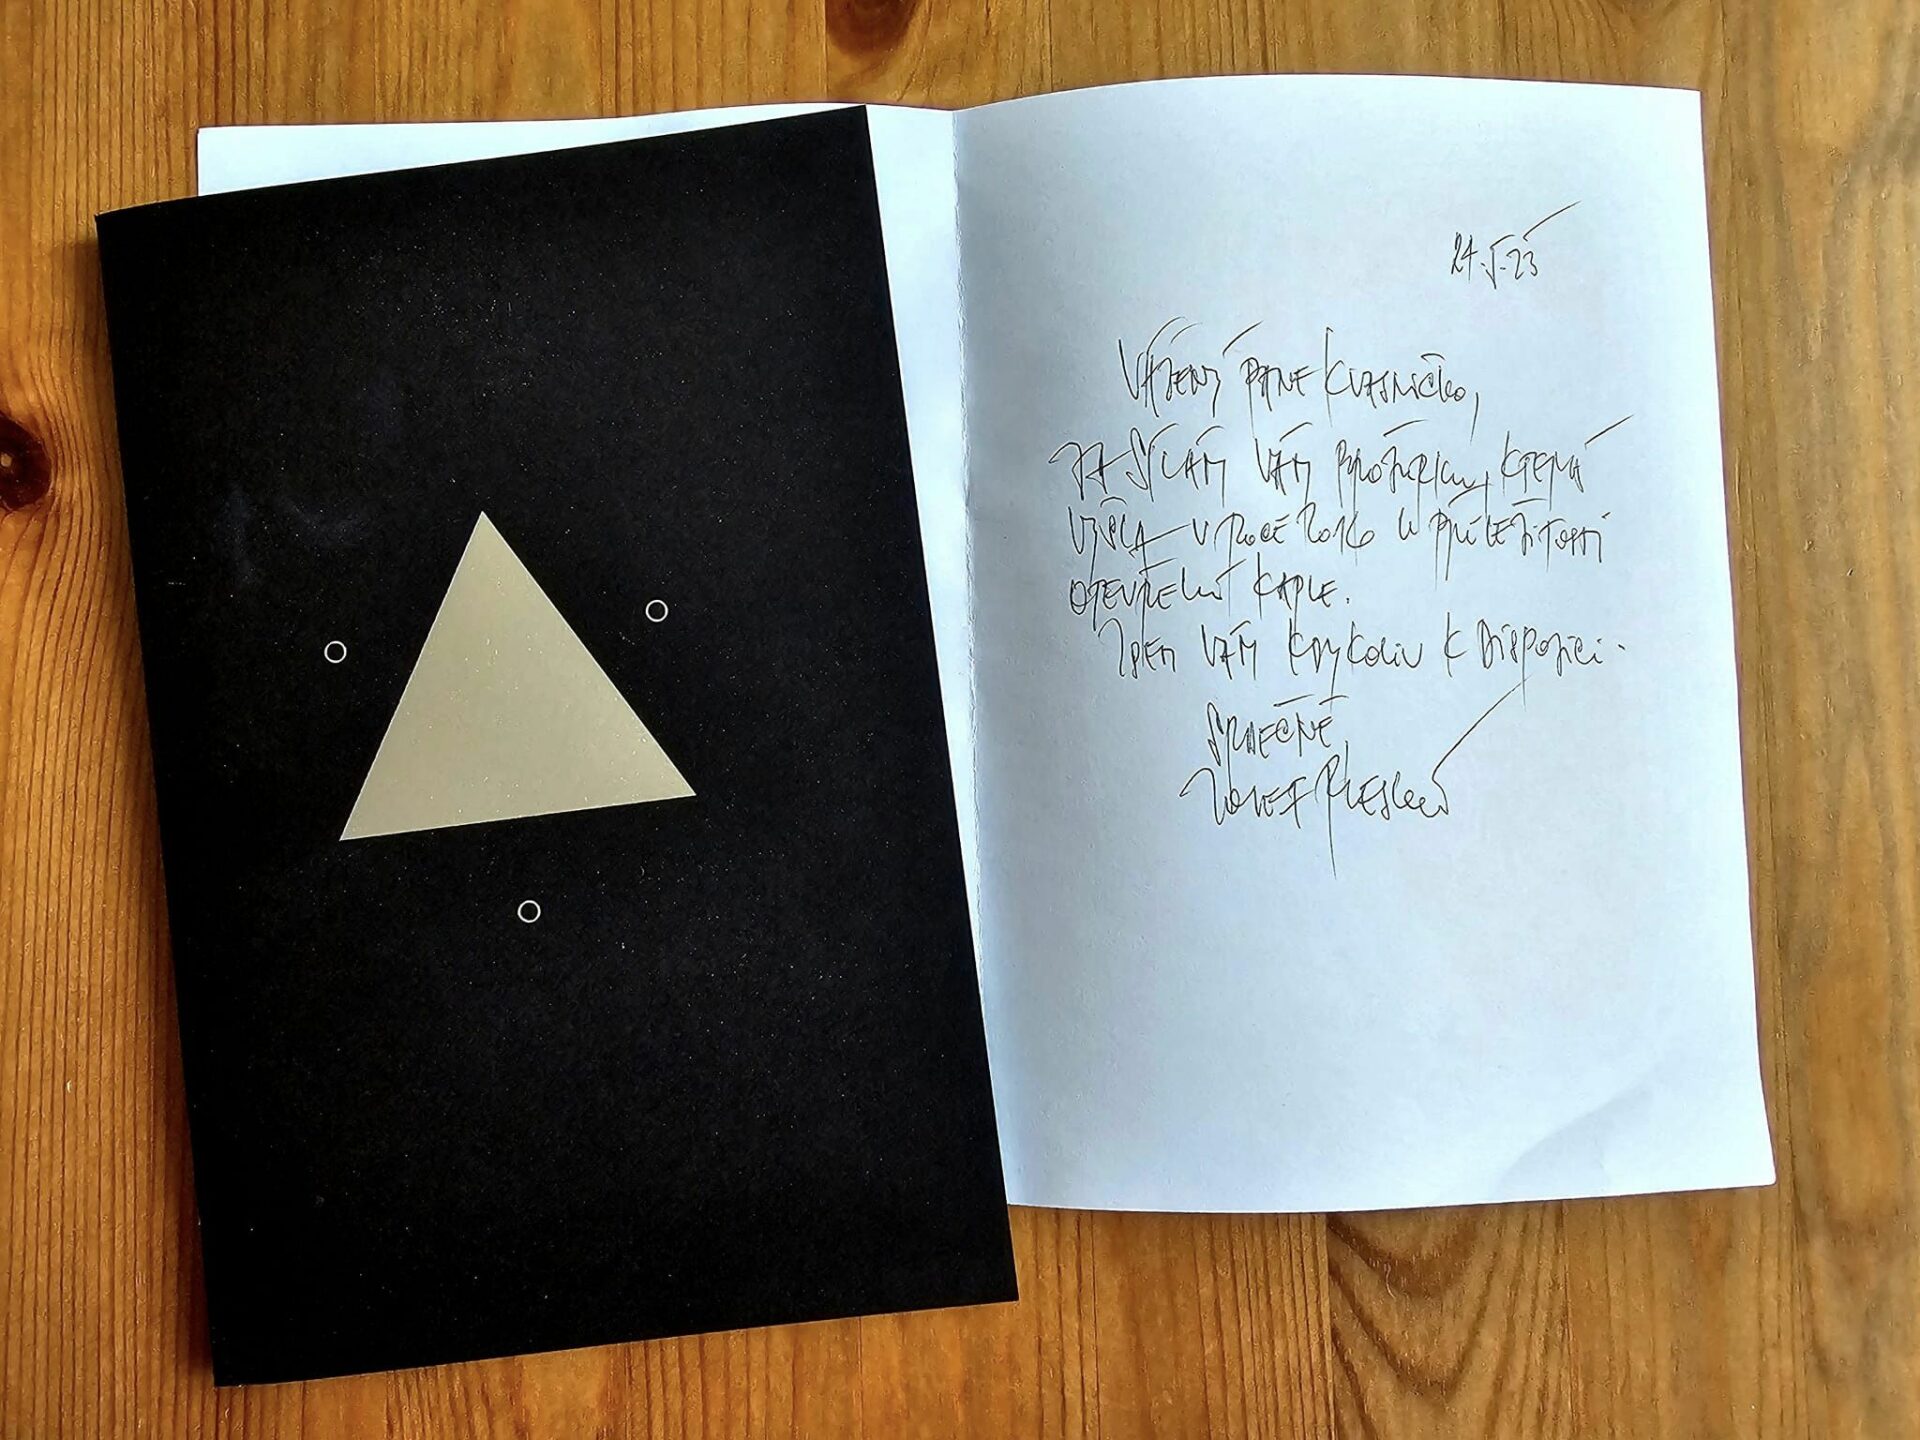 24.5.23
VÁŽENÝ PANE KVASNIČKO,
ZASÍLÁM VÁM BROŽURKU, KTERÁ
VYŠLA V ROCE 2016 U PŘÍLEŽITOSTI
OTEVŘENÍ KAPLE.
JSEM VÁM KDYKOLIV K DISPOZICI.
SRDEČNĚ
JOSEF